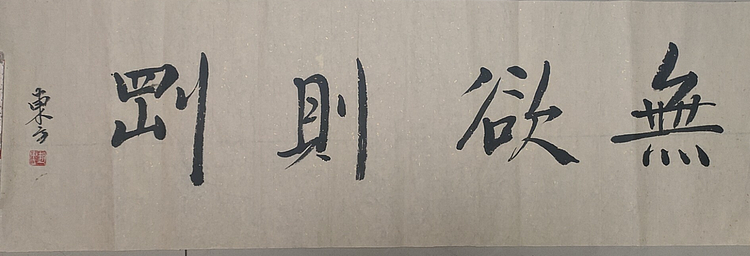 無欲則剛
東方